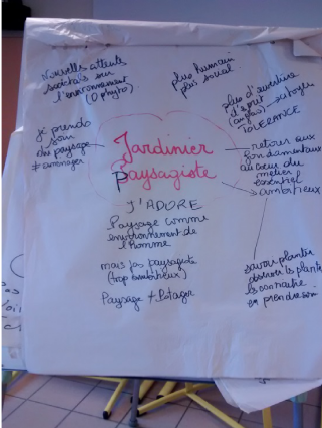 Nouvelles attentes
sociétales sur
l'environnement
(0 phyto)
plus humain
plus social
plus d'ouverture
d'esprit
(au plais) → citoyen
TOLERANCE
je prends
soin
du paysage
≠ aménager
Jardinier
Paysagiste
retour aux
fondamentaux
au cœur du
métier
essentiel
→ ambitieux
J'ADORE
Paysage comme
environnement de
l'homme
mais pas paysagiste
(trop ambitieux)
Paysage + Potager
savoir planter
observer les plantes
les connaître
en prendre soin